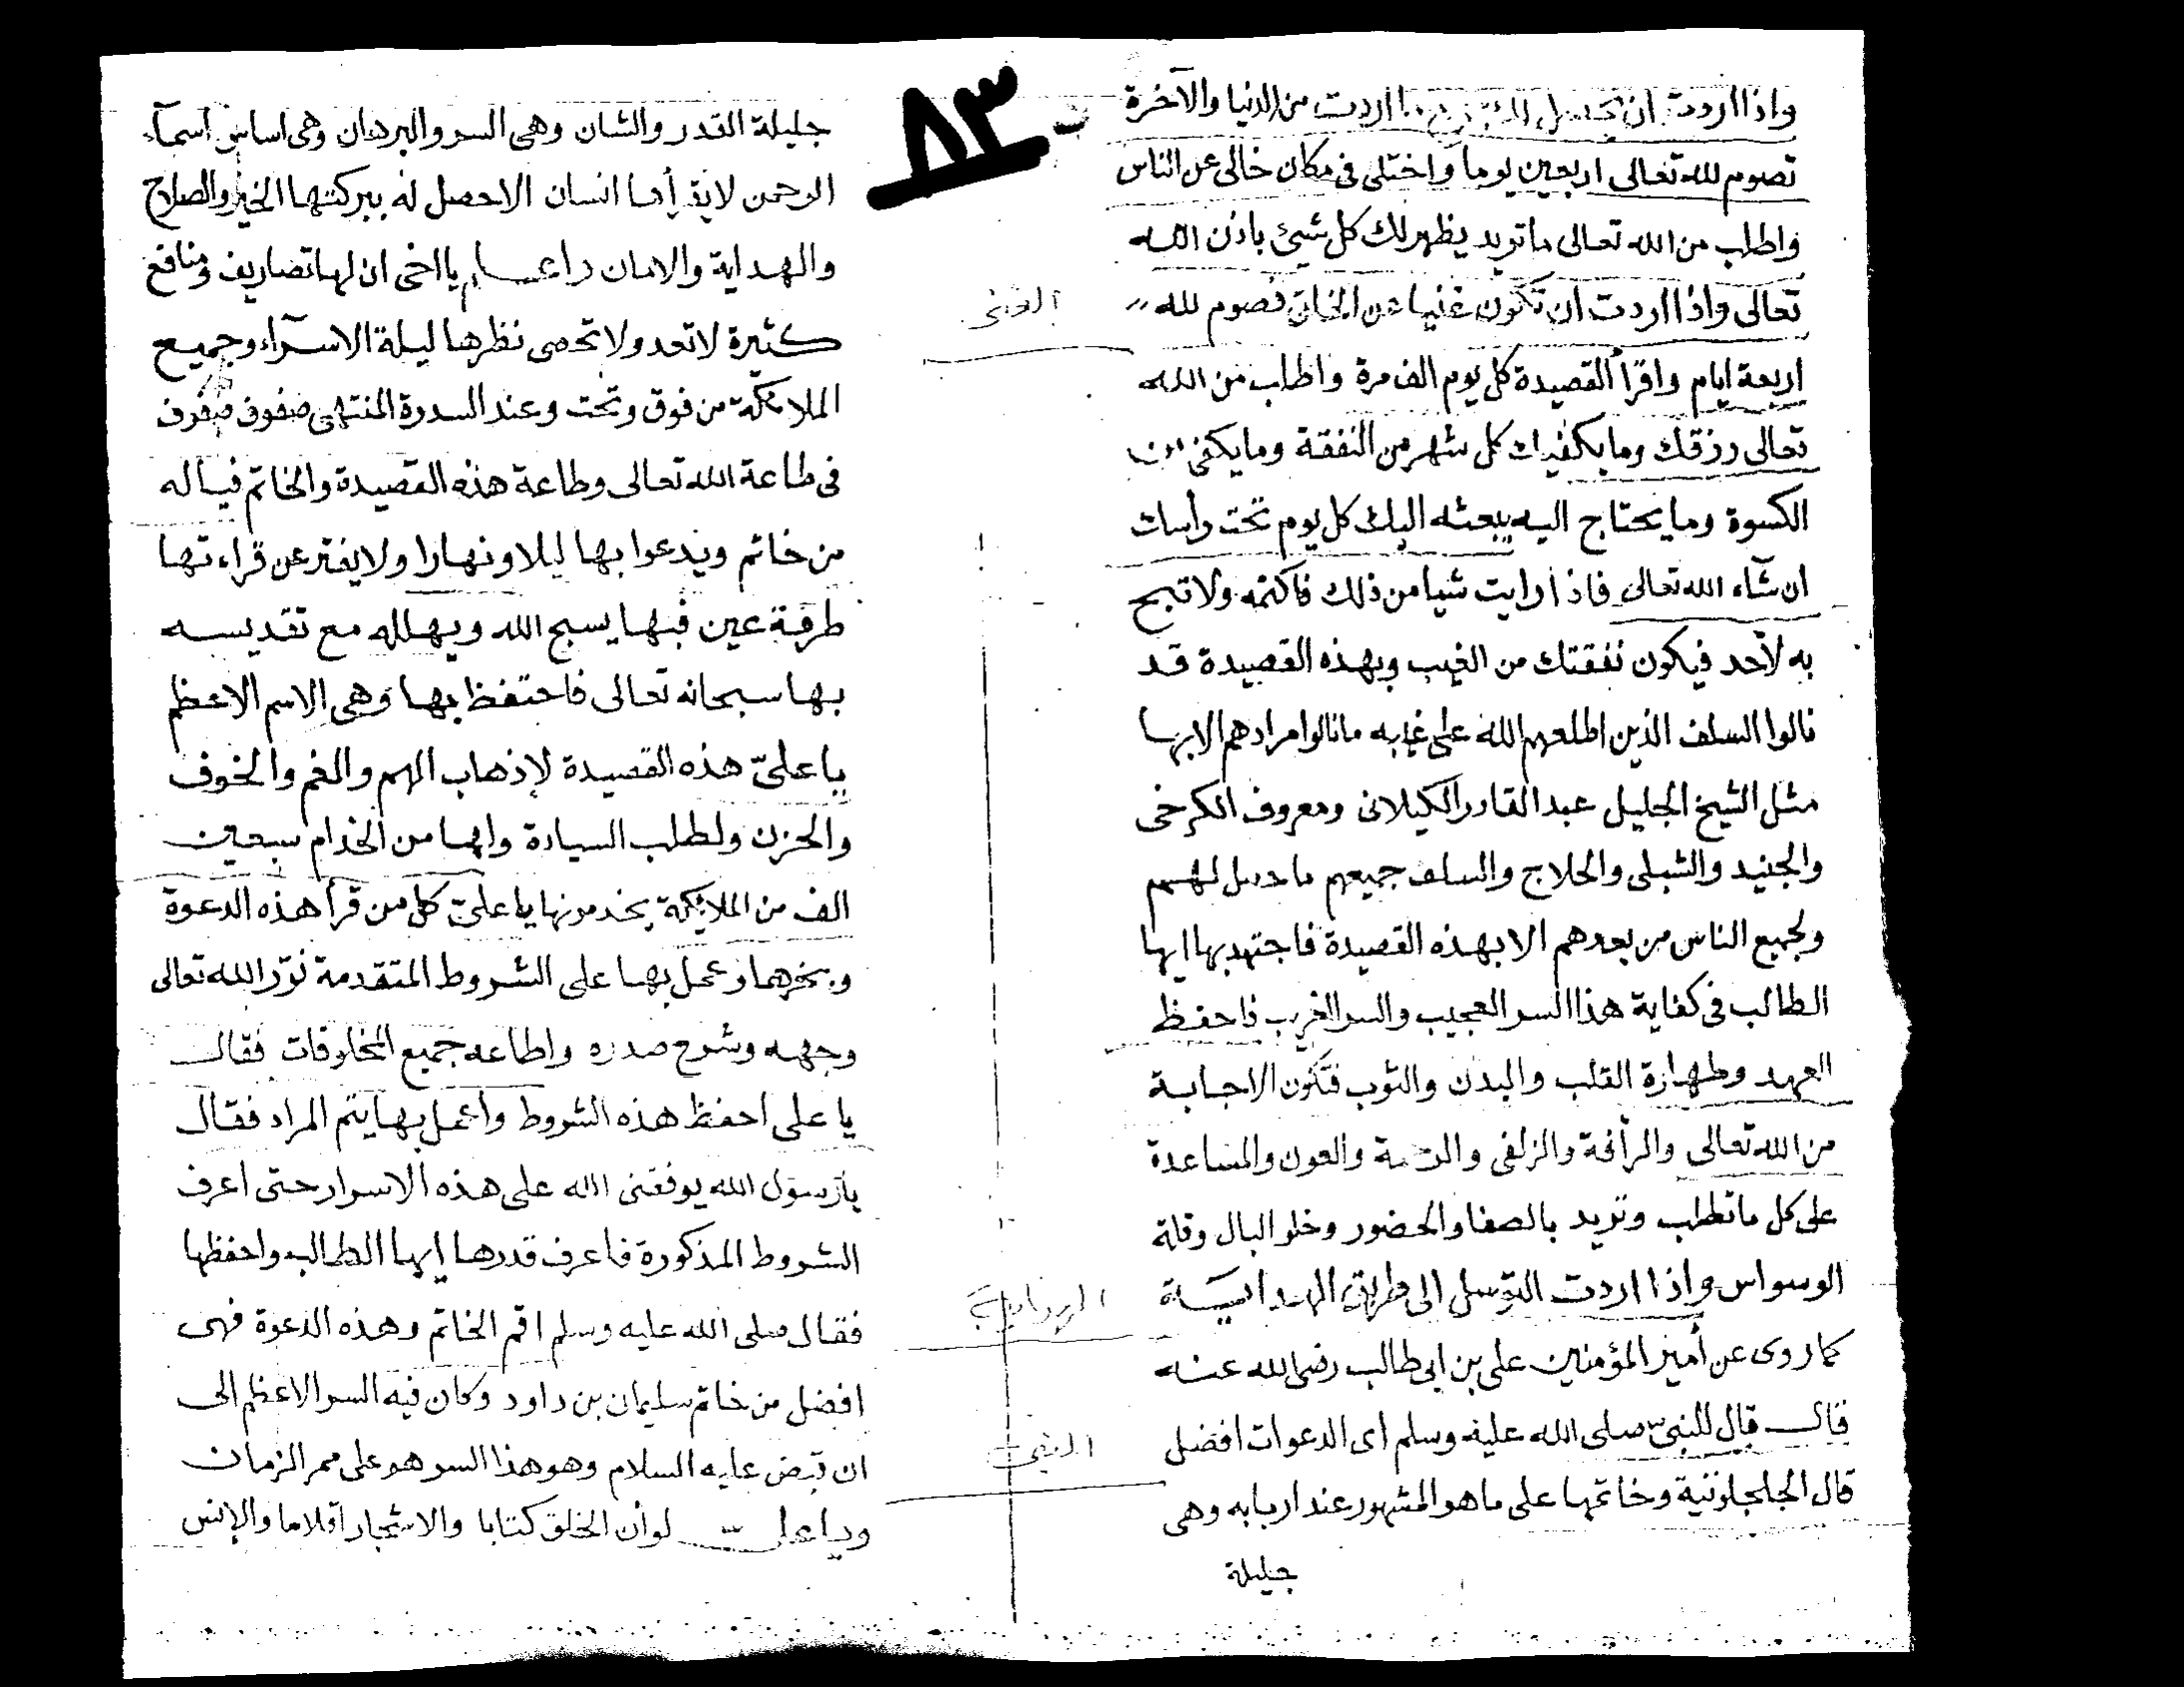 واذا اردت ان اردت من الدنيا والآخرة
تصوم لله تعالى اربعين يوما واختلى فى مكان خالى عن الناس
واطلب من الله تعالى ما تريد يظهر لك كل شيئ باذن الله
تعالى واذا اردت ان تكون غنيا عن الخلق تصوم لله
اربعة ايام واقرأ القصيدة كل يوم الف مرة واطلب من الله
تعالى رزقك وما يكفيك كل شهر من النفقة وما يكفى من
الكسوة وما يحتاج اليه يبعثه اليك كل يوم تحت رأسك
ان شآء الله تعالى فاذا رايت شيا من ذلك فاكتمه ولا تبح
به لأحد فيكون نفقتك من الغيب وبهذه القصيدة قد
نالوا السلف الذين اطلعهم الله على غايبه ما نالوا مرادهم الا بها
مثل الشيخ الجليل عبد القادر الكيلانى ومعروف الكرخى
والجنيد والشبلى والحلاج والسلف جميعهم ما حصل لهم
ولجميع الناس من بعدهم الا بهذه القصيدة فاجتهد بها ايها
الطالب فى كفاية هذا السر العجيب والسر الغريب فاحفظ
العهد وطهارة القلب والبدن والثوب فتكون الاجابة
من الله تعالى والرأفة والزلفى والرحمة والعون والمساعدة
على كل ما تطلب وتريد بالصفا والحضور وخلو البال وقلة
الوسواس واذا اردت التوسل الى طريق الهداية
كما روى عن أمير المؤمنين على بن ابى طالب رضى الله عنه
قال قال للنبىّ صلى الله عليه وسلم اى الدعوات افضل
قال الجلجلوتية وخاتمها على ما هو المشهور عند اربابه وهى
جليلة
الغنى
الهداية
٨٣
جليلة القدر والشان وهى السر والبرهان وهى اساس اسمآء
الرحمن لا يقرأها انسان الا حصل له ببركتها الخير والصلاح
والهداية والامان واعلم يا اخى ان لها تصاريف ومنافع
كثيرة لا تعد ولا تحصى نظرها ليلة الاسرآء وجميع
الملائكة من فوق وتحت وعند السدرة المنتهى صفوف صفوف
فى طاعة الله تعالى وطاعة هذه القصيدة والخاتم فياله
من خاتم ويدعوا بها ليلا ونهارا ولا يفتر عن قراءتها
طرفة عين فبها يسبح الله ويهلله مع تقديسه
بها سبحانه تعالى فاحتفظ بها وهى الاسم الاعظم
يا علىّ هذه القصيدة لإذهاب الهم والغم والخوف
والحزن ولطلب السيادة ولها من الخدام سبعين
الف من الملائكة يخدمونها يا علىّ كل من قرأ هذه الدعوة
وبخرها وعمل بها على الشروط المتقدمة نوّر الله تعالى
وجهه وشرح صدره واطاعه جميع المخلوقات فقال
يا على احفظ هذه الشروط واعمل بها يتم المراد فقال
يا رسول الله يوفقنى الله على هذه الاسرار حتى اعرف
الشروط المذكورة فاعرف قدرها ايها الطالب واحفظها
فقال صلى الله عليه وسلم اقم الخاتم وهذه الدعوة فهى
افضل من خاتم سليمان بن داود وكان فيه السر الاعظم الى
ان قبض عليه السلام وهو هذا السر هو على ممر الزمان
لو أن الخلق كتابا والاشجار اقلاما والإنس